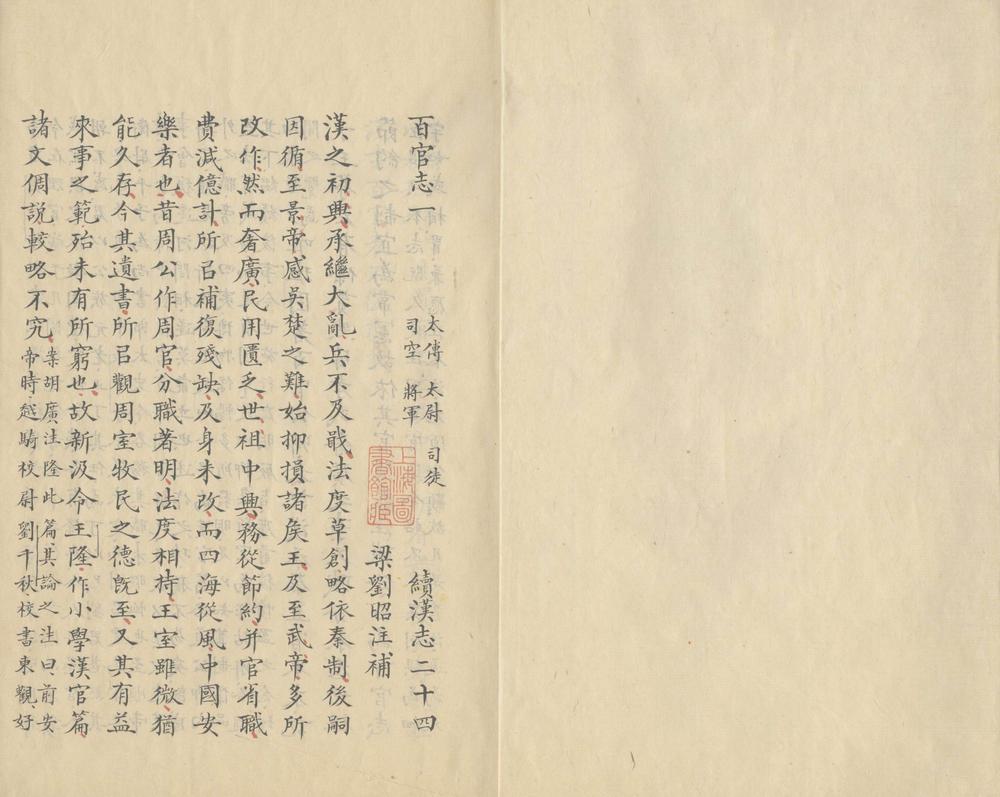 百官志一 太傅 太尉 司徒 司空 將軍 續漢志二十四
上海圖書館藏
梁劉昭注補
漢之初興承繼大亂兵不及戢法度草創略依秦制後嗣
因循至景帝感吳楚之難始抑損諸矦王及至武帝多所
改作然而奢廣民用匱乏世祖中興務從節約并官省職
費減億計所㠯補復殘缺及身未改而四海從風中國安
樂者也昔周公作周官分職著明法度相持王室雖微猶
能久存今其遺書所㠯觀周室牧民之德旣至又其有益
來事之範殆未有所窮也故新汲令王隆作小學漢官篇
諸文倜說較略不究 案胡廣注隆此篇其論之注曰前安
帝時越騎校尉劉千秋校書東觀好